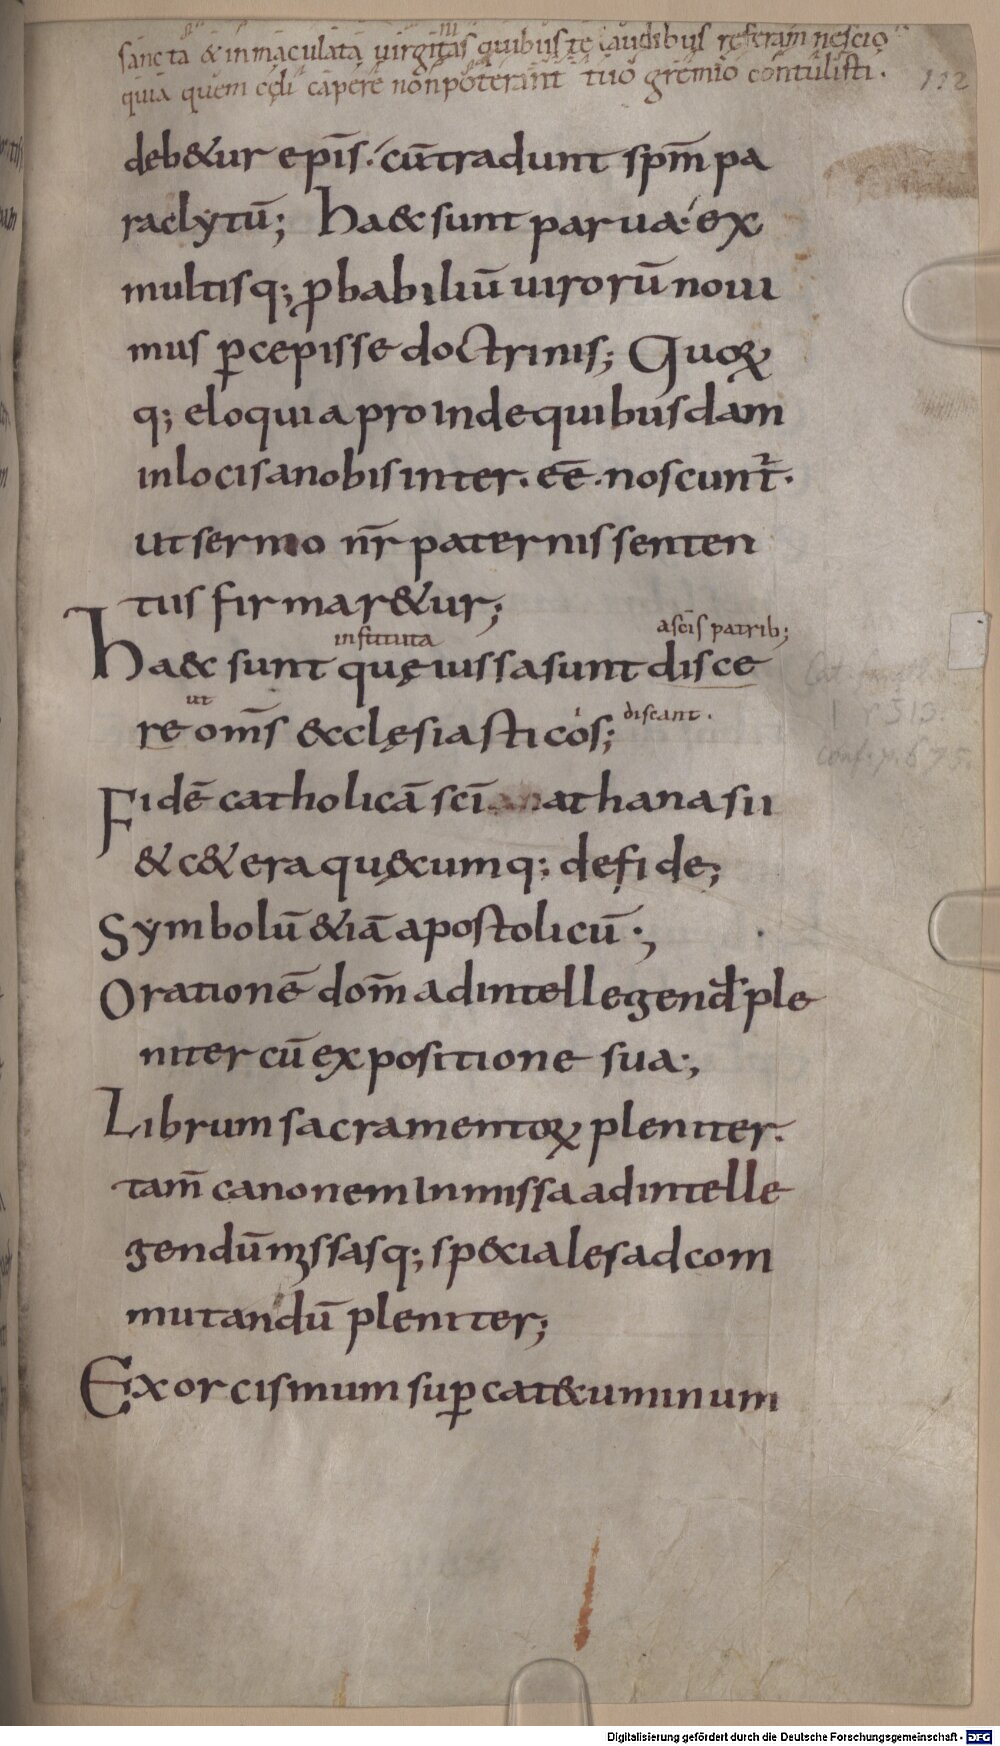 sancta & inmaculata uirginitas quibus te laudibus referam nescio
quia quem cęli capere non poterant tuo gremio contulisti.
112
deb&ur ep̅is. cu̅ tradunt sp̅m pa
raclytu̅; Haec sunt parua. ex
multisq; ꝓbabiliu̅ uiroru̅ noui
mus ꝑcepisse doctrinis; Quoꝝ
q; eloquia proinde quibusdam
in locis a nobis inter. ee̅. noscunt̅.
ut sermo nr̅ paternis senten
tiis firmar&ur;
instituta a sc̅is patrib;
Haec sunt quę iussa sunt disce
ut discant.
re om̅s ęcclęsiasticos;
Fide̅ catholica̅ sc̅i athanasii
& c&era quęcumq; de fide;
Symbolu̅ &ia̅ apostolicu̅.,
Oratione̅ dom̅ ad intellegend̅ ple
niter cu̅ expositione sua;
Librum sacramentoꝝ pleniter.
tam̅ canonem In missa ad intelle
gendu̅ m̅ssasq; speciales ad com
mutandu̅ pleniter;
Exorcismum suꝑ catecuminum
Digitalisierung gefördert durch die Deutsche Forschungsgemeinschaft - DFG